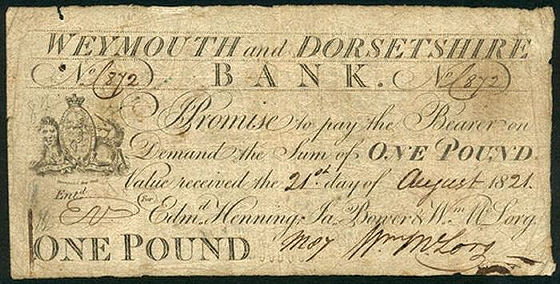 WEYMOUTH and DORSETSHIRE
No 872 BANK. No 872
I Promise to pay the Bearer on
Demand the Sum of ONE POUND
Value received the 21st day of August 1821.
Entd
For Edmd Henning, Jas Bower & Wm McLorg.
ONE POUND Wm McLorg